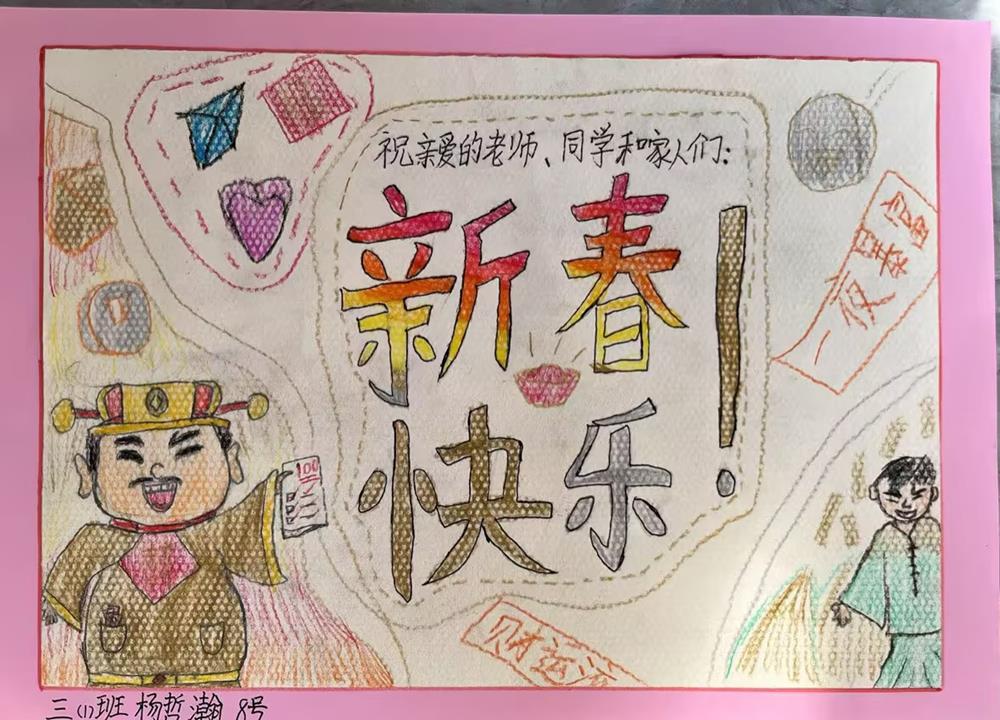 祝亲爱的老师、同学和家人们:
新春
快乐!
一夜暴富
100
财运
三(1)班 杨哲瀚 8号